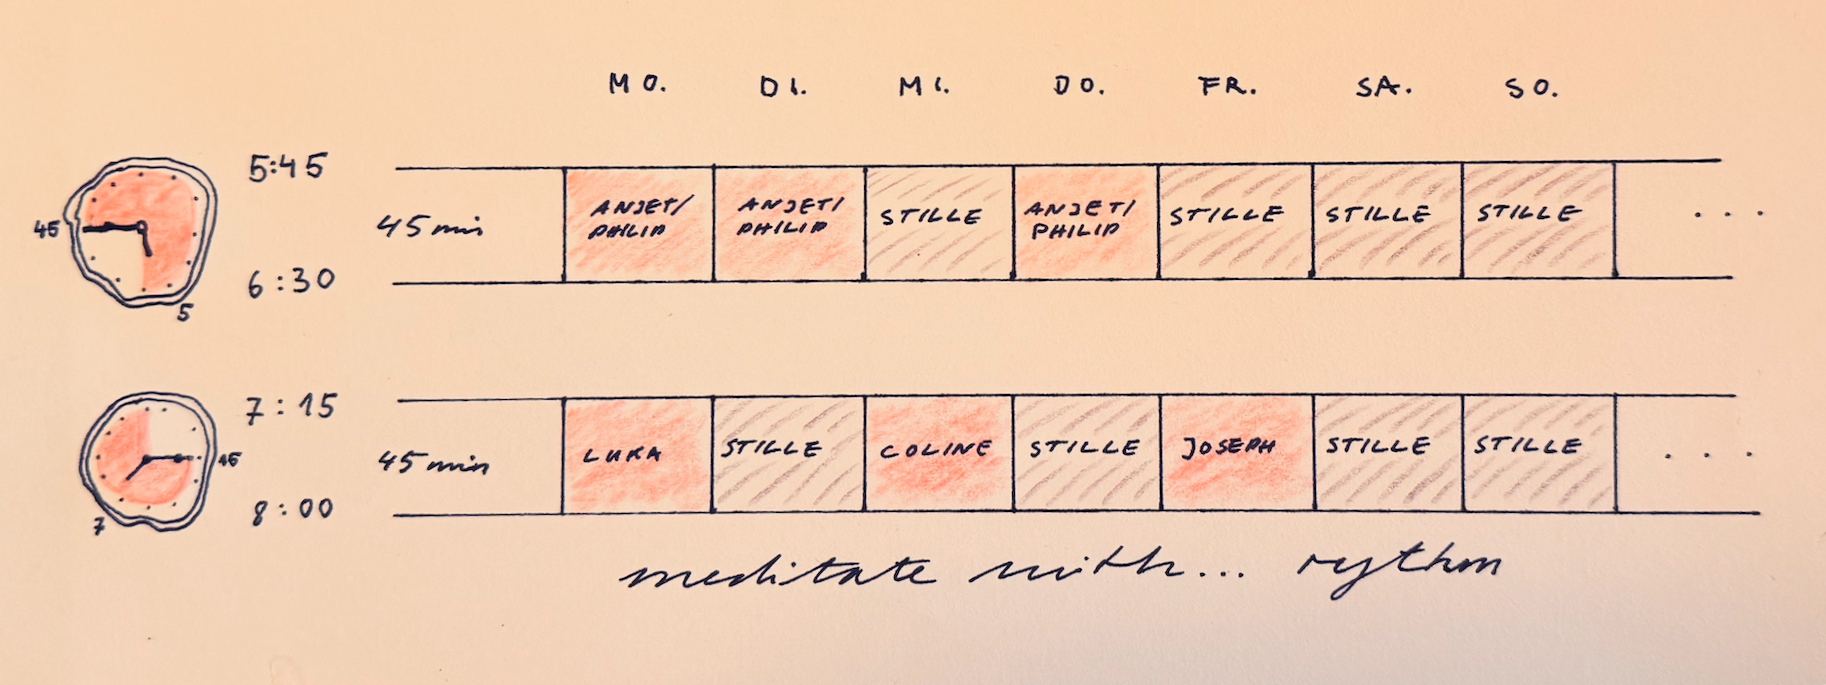 MO. DI. MI. DO. FR. SA. SO.
5:45
45 min
45
6:30
5
ANJET/ PHILIP
ANJET/ PHILIP
STILLE
ANJET/ PHILIP
STILLE
STILLE
STILLE
...
7:15
45 min
15
8:00
7
LUKA
STILLE
COLINE
STILLE
JOSEPH
STILLE
STILLE
...
meditate with... rythm